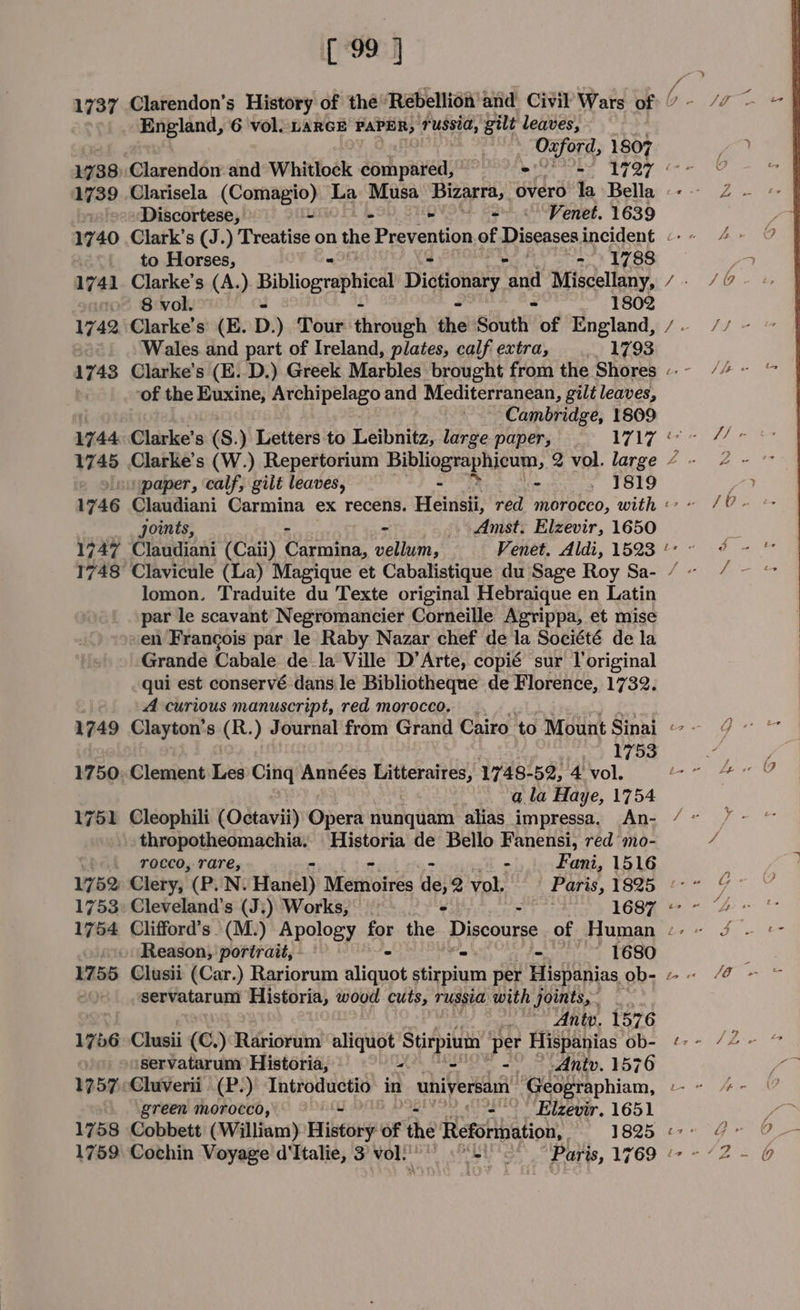 [ 99 ]
1737 Clarendon's History of the Rebellion and Civil Wars of
England, 6 vol. LARGE PAPER, russia, gilt leaves,
Oxford, 1807
1738 Clarendon and Whitlock compared, - - 1727
1739 Clarisela (Comagio) La Musa Bizarra, overo la Bella
Discortese, - - - - Venet. 1639
1740 Clark's (J.) Treatise on the Prevention of Diseases incident
to Horses, - - - - 1788
1741 Clarke's (A.) Bibliographical Dictionary and Miscellany,
8 vol. - - - - 1802
1742 Clarke's (E. D.) Tour through the South of England,
Wales and part of Ireland, plates, calf extra, 1793
1743 Clarke's (E. D.) Greek Marbles brought from the Shores
of the Euxine, Archipelago and Mediterranean, gilt leaves,
Cambridge, 1809
1744 Clarke's (S.) Letters to Leibnitz, large paper, 1717
1745 Clarke's (W.) Repertorium Bibliographicum, 2 vol. large
paper, calf, gilt leaves, - - 1819
1746 Claudiani Carmina ex recens. Heinsii, red morocco, with
joints, - - Amst. Elzevir, 1650
1747 Claudiani (Caii) Carmina, vellum, Venet. Aldi, 1523
1748 Clavicule (La) Magique et Cabalistique du Sage Roy Sa-
lomon. Traduite du Texte original Hebraique en Latin
par le scavant Negromancier Corneille Agrippa, et mise
en François par le Raby Nazar chef de la Société de la
Grande Cabale de la Ville D'Arte, copié sur l'original
qui est conservé dans le Bibliotheque de Florence, 1732.
A curious manuscript, red morocco.
1749 Clayton's (R.) Journal from Grand Cairo to Mount Sinai
1753
1750 Clement Les Cinq Années Litteraires, 1748-52, 4 vol.
a la Haye, 1754
1751 Cleophili (Octavii) Opera nunquam alias impressa. An-
thropotheomachia. Historia de Bello Fanensi, red mo-
rocco, rare, - - - - Fani, 1516
1752 Clery, (P. N. Hanel) Memoires de, 2 vol. Paris, 1825
1753 Cleveland's (J.) Works, - - 1687
1754 Clifford's (M.) Apology for the Discourse of Human
Reason, portrait, - - - 1680
1755 Clusii (Car.) Rariorum aliquot stirpium per Hispanias ob-
servatarum Historia, wood cuts, russia with joints,
Antv. 1576
1756 Clusii (C.) Rariorum aliquot Stirpium per Hispanias ob-
servatarum Historia, - - - Antv. 1576
1757 Cluverii (P.) Introductio in universam Geographiam,
green morocco, - - - Elzevir. 1651
1758 Cobbett (William) History of the Reformation, 1825
1759 Cochin Voyage d'Italie, 3 vol. - Paris, 1769